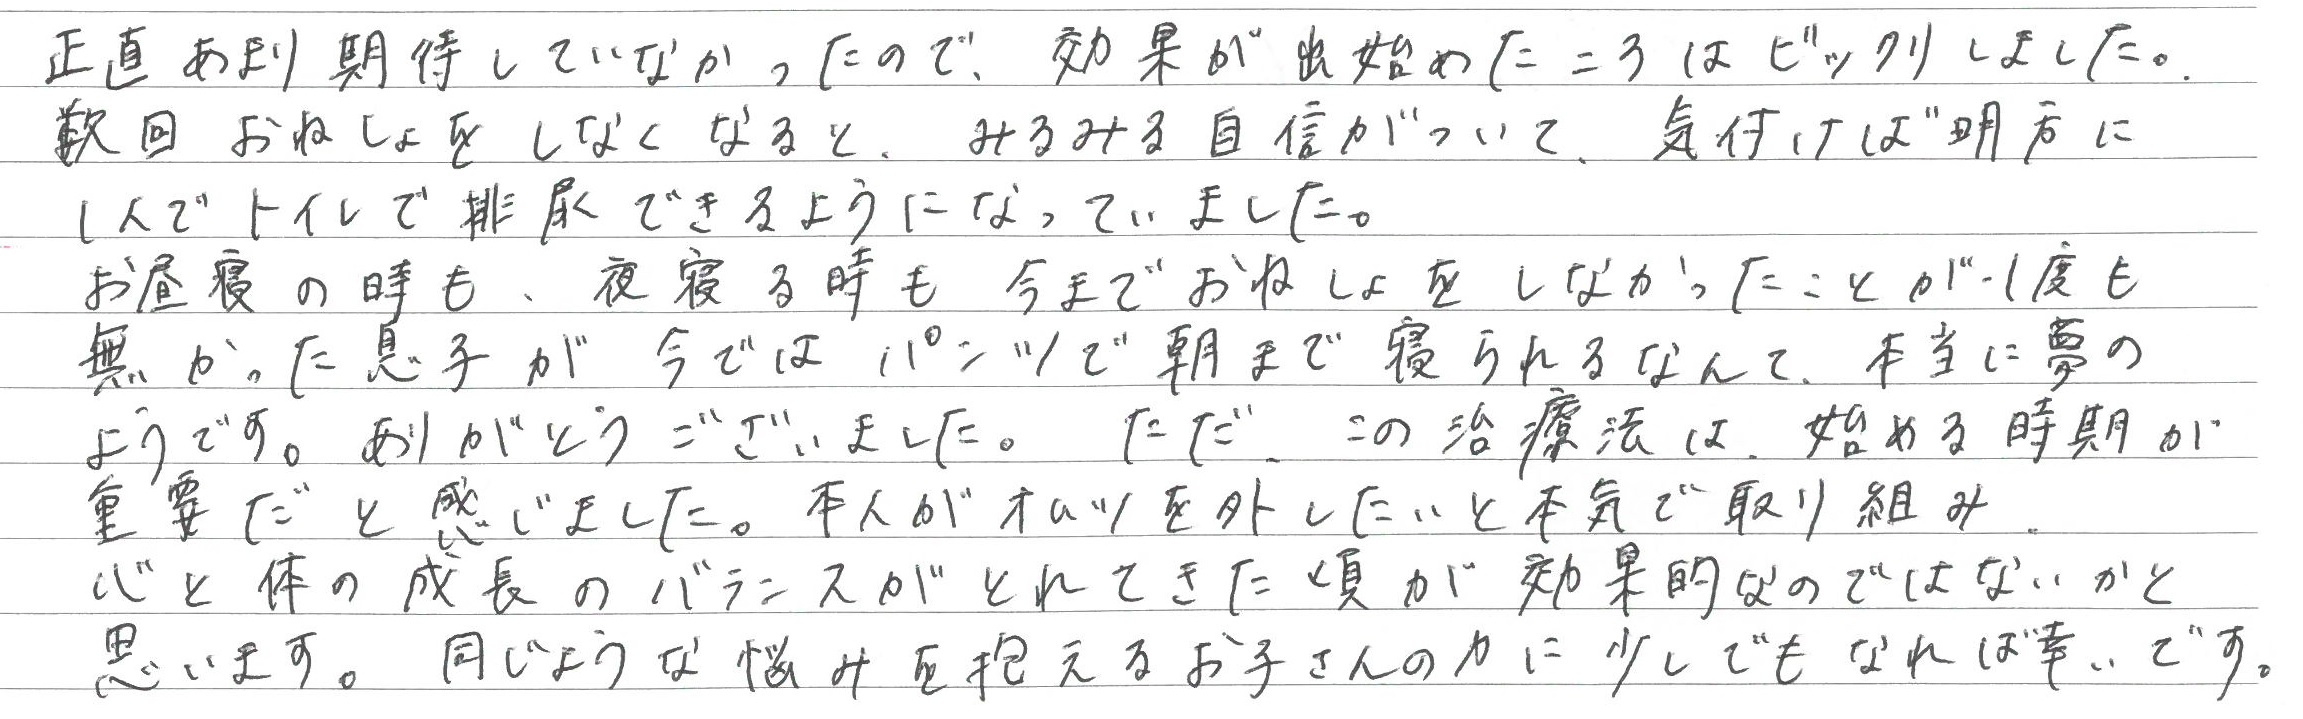 正直あまり期待していなかったので、効果が出始めたころはビックリしました。
数回おねしょをしなくなると、みるみる自信がついて、気付けば明方に
1人でトイレで排尿できるようになっていました。
お昼寝の時も、夜寝る時も今までおねしょをしなかったことが1度も
無かった息子が今ではパンツで朝まで寝られるなんて、本当に夢の
ようです。ありがとうございました。ただ、この治療法は、始める時期が
重要だと感じました。本人がオムツを外したいと本気で取り組み、
心と体の成長のバランスがとれてきた頃が効果的なのではないかと
思います。同じような悩みを抱えるお子さんの力に少しでもなれば幸いです。